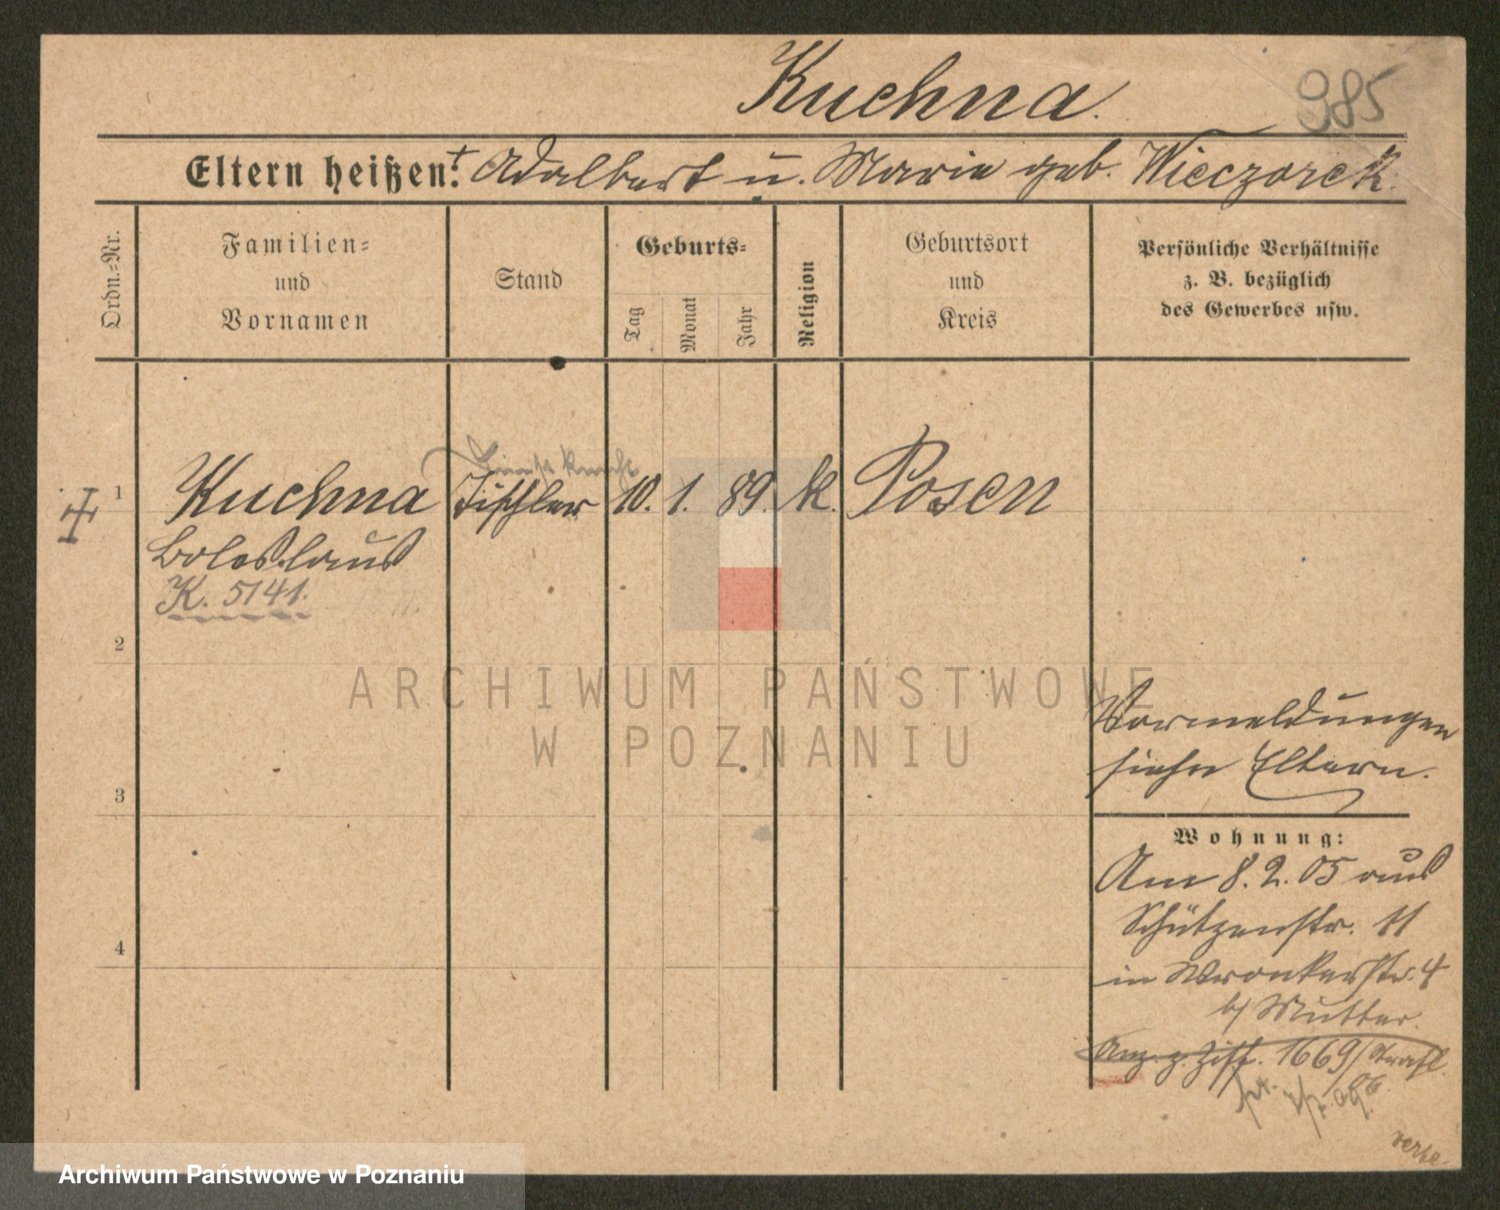 Kuchna.
985
Eltern heißen: † Adalbert u. Marie geb. Wieczorek.
Ordn.-Nr.
Familien-
und
Vornamen
Stand
Geburts-
Tag
Monat
Jahr
Religion
Geburtsort
und
Kreis
Persönliche Verhältnisse
z. B. bezüglich
des Gewerbes usw.
1
Kuchna
Tischler
10. 1. 89. k. Posen
Boleslaus
K. 5141.
2
3
4
Vormeldungen
siehe Eltern.
Wohnung:
Am 8.2.05 aus
Schützenstr. 11
in Wronkerstr. 4
b/ Mutter.
Anz. z. Ziff. 1669/
ARCHIWUM PAŃSTWOWE
W POZNANIU
Archiwum Państwowe w Poznaniu